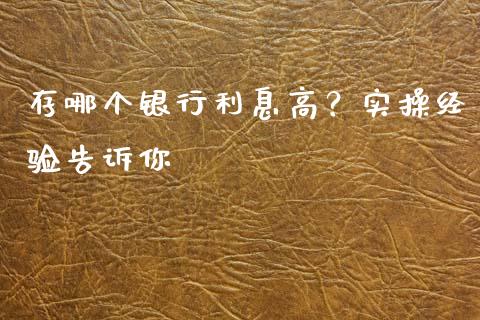 存哪个银行利息高？实操经
验告诉你